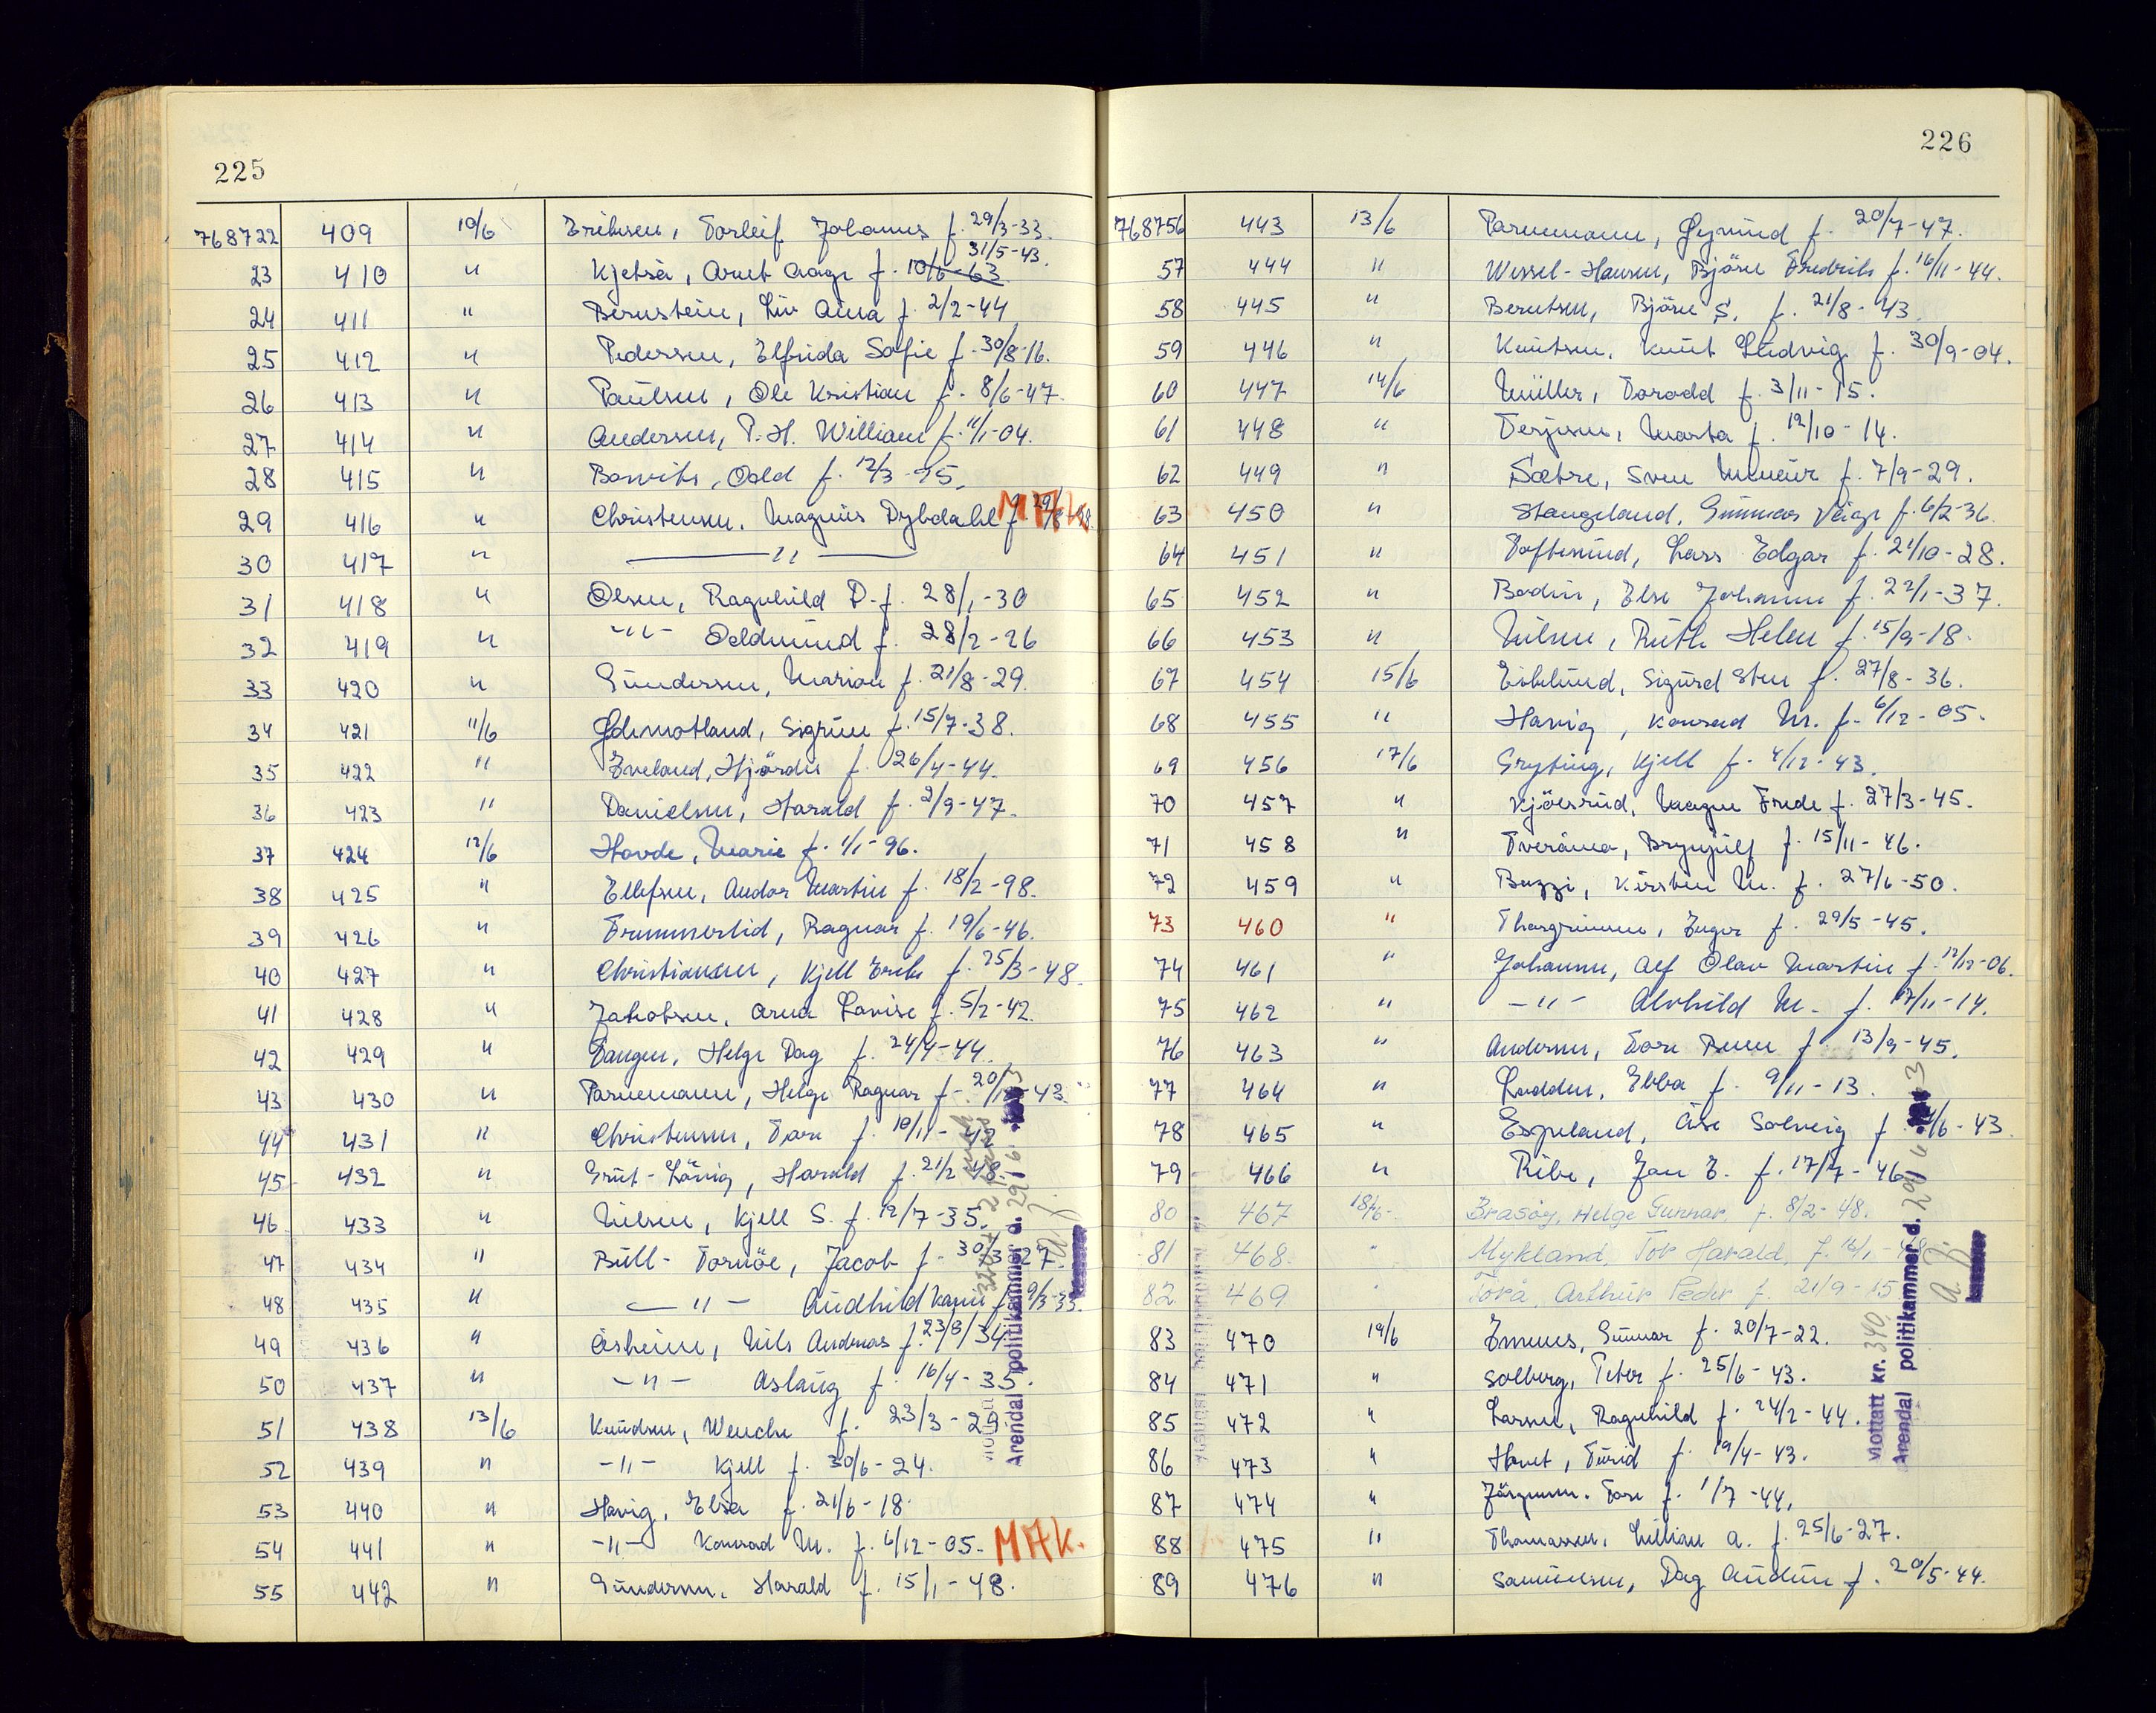 225
768722 409 10/6 Eriksen, Torleif Johannes f. 29/3-33.
31/5-43.
23 410 " Kjetså, Arnt Aage f. 10/6-63
24 411 " Bernstein, Liv Aina f. 2/2-44
25 412 " Pedersen, Elfrida Sofie f. 30/8-16.
26 413 " Paulsen, Ole Kristian f. 8/6-47.
27 414 " Andersen, P.H. William f. 11/1-04.
28 415 " Odd f. 12/3-15.
29 416 " Christensen, Magnus Dybdahl f. 29/8 MAK
30 417 " — " —
31 418 " Olsen, Ragnhild D. f. 28/1-30
32 419 " -"- Oddmund f. 28/2-26
33 420 " Gundersen, Marion f. 21/8-29.
34 421 11/6 Sigrun f. 15/7-38.
35 422 " Eveland, Hjördis f. 26/4-44.
36 423 " Danielsen, Harald f. 2/9-47.
37 424 12/6 Hovde, Marie f. 1/1-96.
38 425 " Ellefsen, Andor Martin f. 18/2-98.
39 426 " Trummerlid, Ragnar f. 19/6-46.
40 427 " Christiansen, Kjell Erik f. 25/3-48.
41 428 " Jakobsen, Arna Lovise f. 5/2-42.
42 429 " Tangen, Helge Dag f. 24/4-44.
43 430 " Parnemann, Helge Ragnar f. 20/ -43.
44 431 " Christensen, Tore f. 10/11-42
45 432 " Harald f. 21/2-48.
46 433 " Nilsen, Kjell S. f. 12/7-35.
47 434 " Bull-Tornöe, Jacob f. 30/3-27.
48 435 " — " — Audhild Karin f. 9/3-33.
49 436 " Åsheim, Nils Andreas f. 23/8/34
50 437 " -"- Aslaug f. 16/4-35.
51 438 13/6 Knudsen, Wenche f. 23/3-29
52 439 " -"- Kjell f. 30/6-24.
53 440 " Havig, Elsa f. 21/6-18.
54 441 " -"- Konrad M. f. 6/12-05. MAK.
55 442 " Gundersen, Harald f. 15/1-48.
Arendal politikammer d. 29/6
226
768756 443 13/6 Parnemann, Öyvind f. 20/7-47.
57 444 " Wessel-Hansen, Björn Fredrik f. 16/11-44.
58 445 " Berntsen, Björn S. f. 21/8-43.
59 446 " Knutsen, Knut Ludvig f. 30/9-04.
60 447 14/6 Müller, Torodd f. 3/11-15.
61 448 " Terjesen, Marta f. 12/10-14.
62 449 " Sætre, Sven f. 7/9-29.
63 450 " Stangeland, Gunnar f. 6/2-36.
64 451 " Toftesund, Lars Edgar f. 21/10-28.
65 452 " Bodin, Else Johanne f. 22/1-37.
66 453 " Nilsen, Ruth Helen f. 15/9-18.
67 454 15/6 Eiklund, Sigurd Sten f. 27/8-36.
68 455 " Havig, Konrad M. f. 6/12-05.
69 456 17/6 Gryting, Kjell f. 4/12-43.
70 457 " Kjölsrud, Magne Frede f. 27/3-45.
71 458 " Tveråmo, Brynjulf f. 15/11-46.
72 459 " Buzzi, Kirsten M. f. 27/6-50.
73 460 " Thorgrimsen, Inger f. 29/5-45.
74 461 " Johannsen, Alf Olav Martin f. 12/12-06.
75 462 " -"- Alvhild M. f. 17/11-14.
76 463 " Andersen, Tore f. 13/9-45.
77 464 " Lodden, Ebba f. 9/11-13.
78 465 " Espeland, Åse Solveig f. /6-43.
79 466 " Ribe, Jan E. f. 17/7-46
80 467 18/6 Brasöy, Helge Gunnar, f. 8/2-48.
81 468. " Mykland, Tor Harald, f. 16/1-48
82 469 " Torå, Arthur Peder f. 21/9-15
83 470 19/6 Gunnar f. 20/7-22.
84 471 " Solberg, Peter f. 25/6-43.
85 472 " Larsen, Ragnhild f. 24/2-44.
86 473 " Turid f. 19/4-43.
87 474 " Jörgensen, Tore f. 1/7-44.
88 475 " Thomassen, Lillian A. f. 25/6-27.
89 476 " Samuelsen, Dag Audun f. 20/5-44.
Mottatt kr. 340
Arendal politikammer d. 29/6